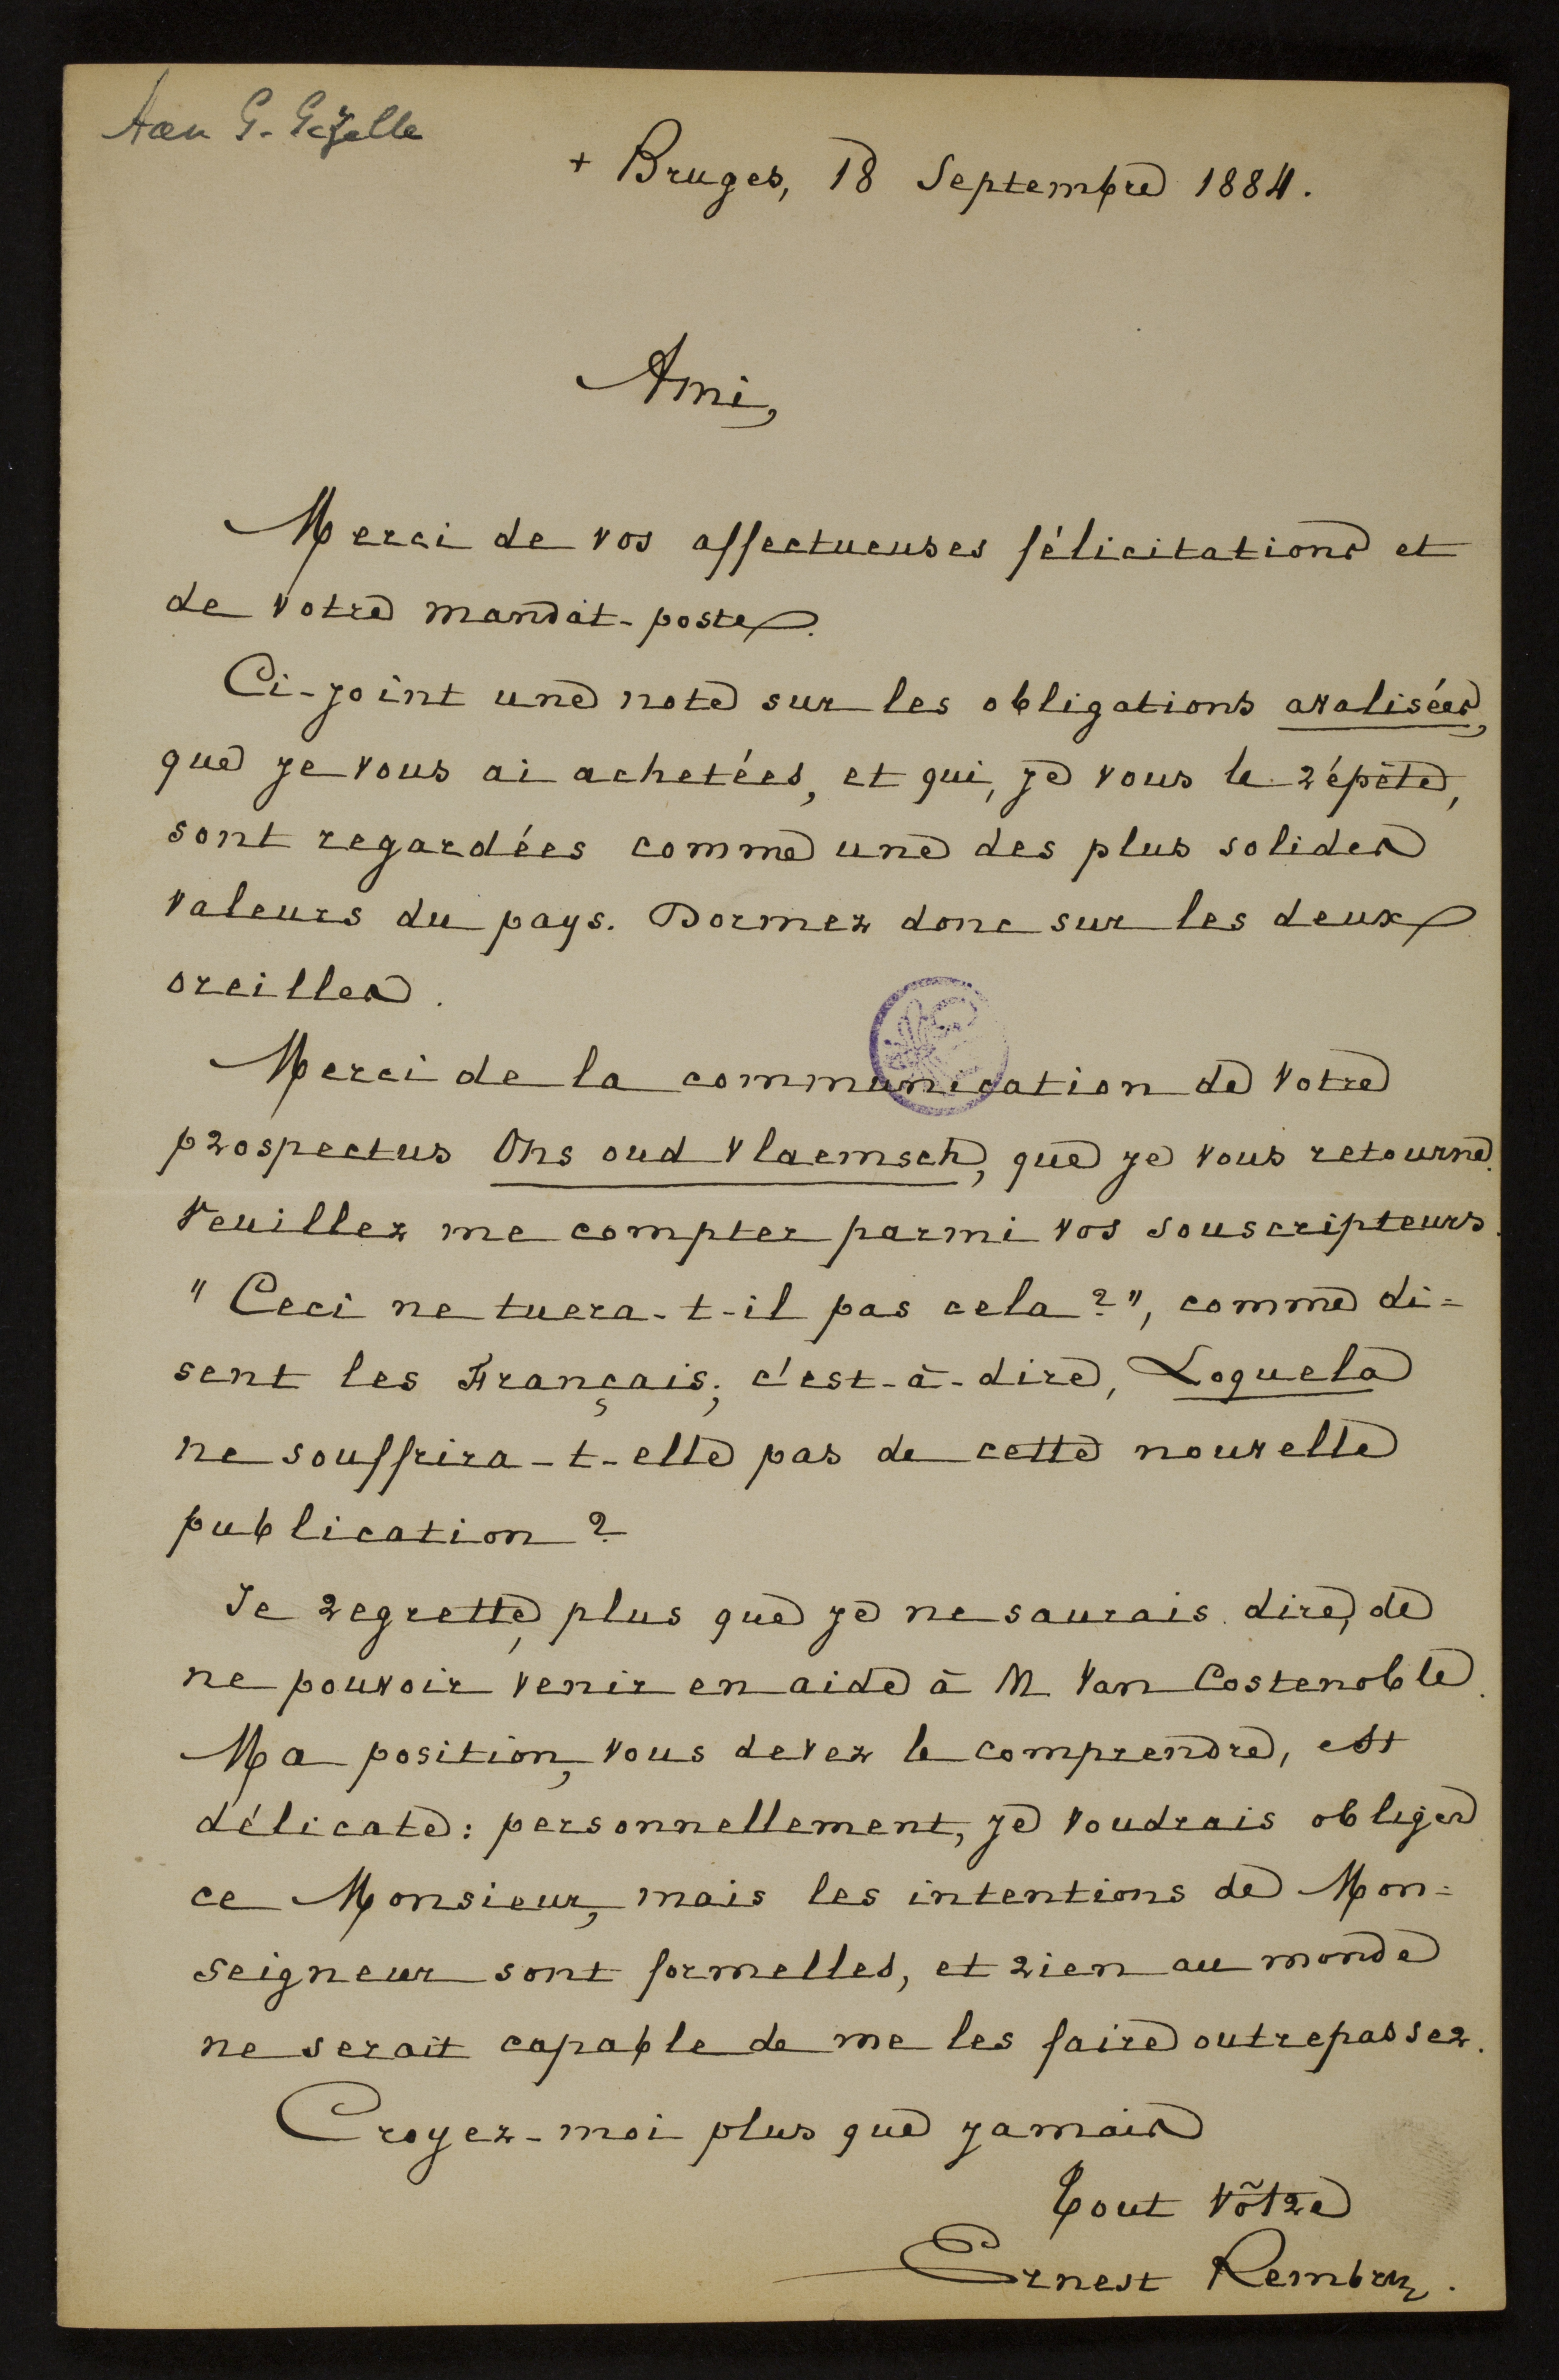 Aan G. Gezelle
+ Bruges, 18 Septembre 1884.
Ami,
Merci de vos affectueuses félicitations et
de votre mandat-poste.
Ci-joint une note sur les obligations avalisées,
que je vous ai achetées, et qui, je vous le répète,
sont regardées comme une des plus solides
valeurs du pays. Dormez donc sur les deux
oreilles.
Merci de la communication de votre
prospectus Ons oud Vlaemsch, que je vous retourne.
Veuillez me compter parmi vos souscripteurs.
"Ceci ne tuera-t-il pas cela?", comme di=
sent les Français; c'est-à-dire, Loquela
ne souffrira-t-elle pas de cette nouvelle
publication?
Je regrette, plus que je ne saurais dire, de
ne pouvoir venir en aide à M Van Costenoble.
Ma position, vous devez le comprendre, est
délicate: personnellement, je voudrais obliger
ce Monsieur, mais les intentions de Mon=
seigneur sont formelles, et rien au monde
ne serait capable de me les faire outrepasser.
Croyez-moi plus que jamais
Tout vôtre
Ernest Rembry.